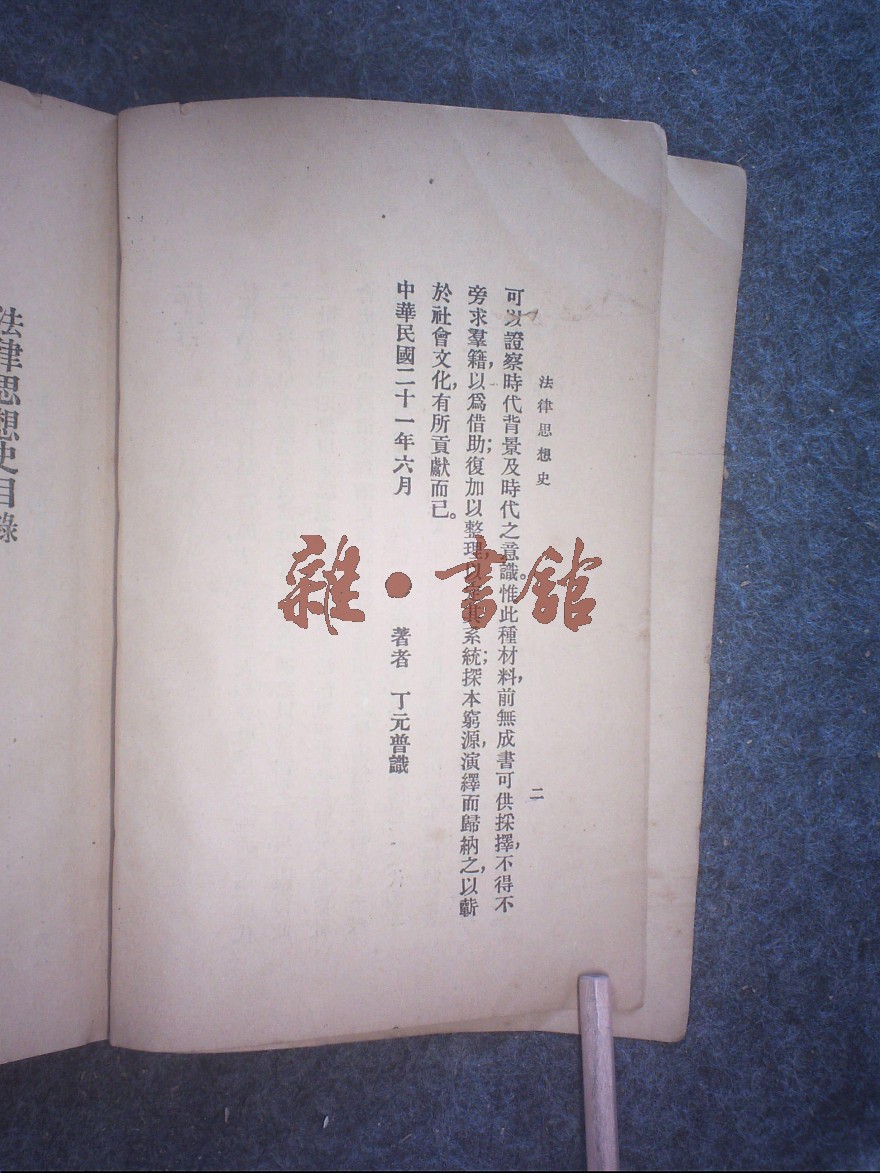 法律思想史
二
可以證察時代背景及時代之意識。惟此種材料，前無成書可供採擇，不得不
旁求羣籍，以爲借助；復加以整理，以 其系統；探本窮源，演繹而歸納之，以蘄
於社會文化，有所貢獻而已。
中華民國二十一年六月
著者 丁元普識
法律思想史目錄
雜·書舘